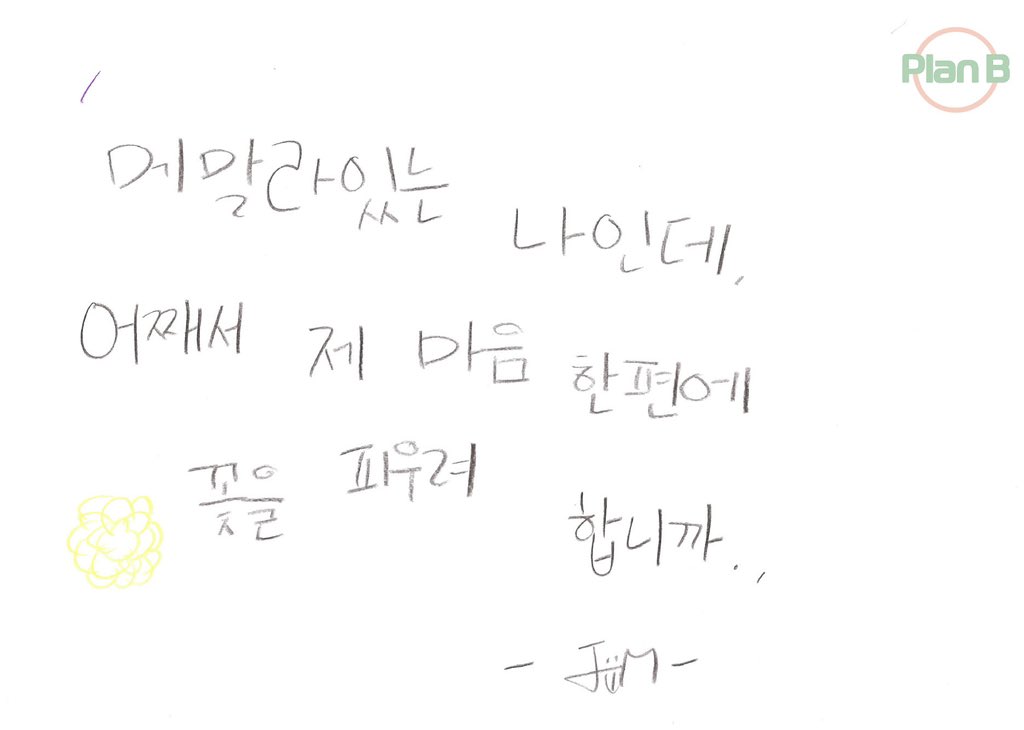 Plan B
메말라있는 나인데,
어째서 제 마음 한편에
꽃을 피우려 합니까..,